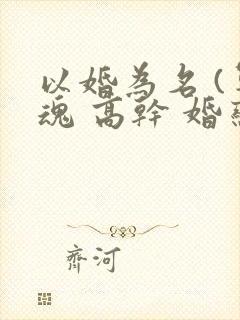 以婚為名(
魂 高幹 婚
齊河